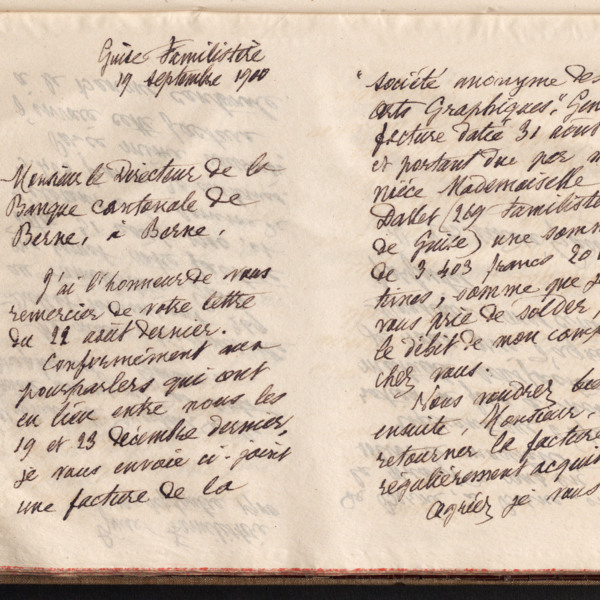 Guise Familistère
19 septembre 1900
Monsieur le Directeur de la
Banque cantonale de
Berne, à Berne.
J'ai l'honneur de vous
remercier de votre lettre
du 22 août dernier.
Conformément aux
pourparlers qui ont
eu lieu entre nous les
19 et 23 décembre dernier,
je vous envoie ci-joint
une facture de la
"société anonyme des
arts Graphiques", Gen
facture datée 31 août
et portant due par
nièce Mademoiselle
Dallet (269 Familistè
de Guise) une somm
de 3.403 francs 20
times, somme que j
vous prie de solder,
le débit de mon comp
chez vous.
Vous voudrez bie
ensuite, Monsieur,
retourner la facture
régulièrement acquit
Agréez je vous